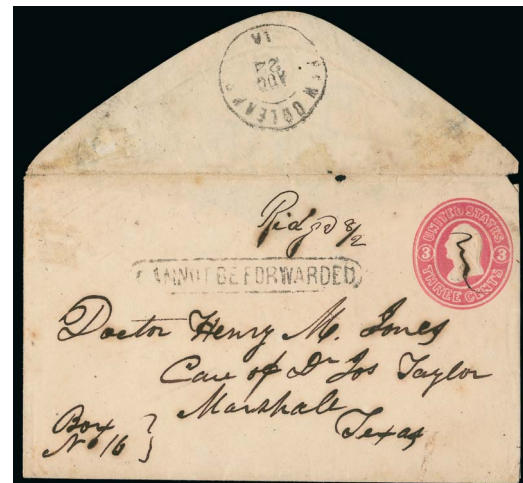 NEW ORLEANS
LA
AUG
24
UNITED STATES
3 3
THREE CENTS
CANNOT BE FORWARDED
Doctor Henry M. Jones
Care of Dr Jos Taylor
Marshall
Texas
Box
No 16